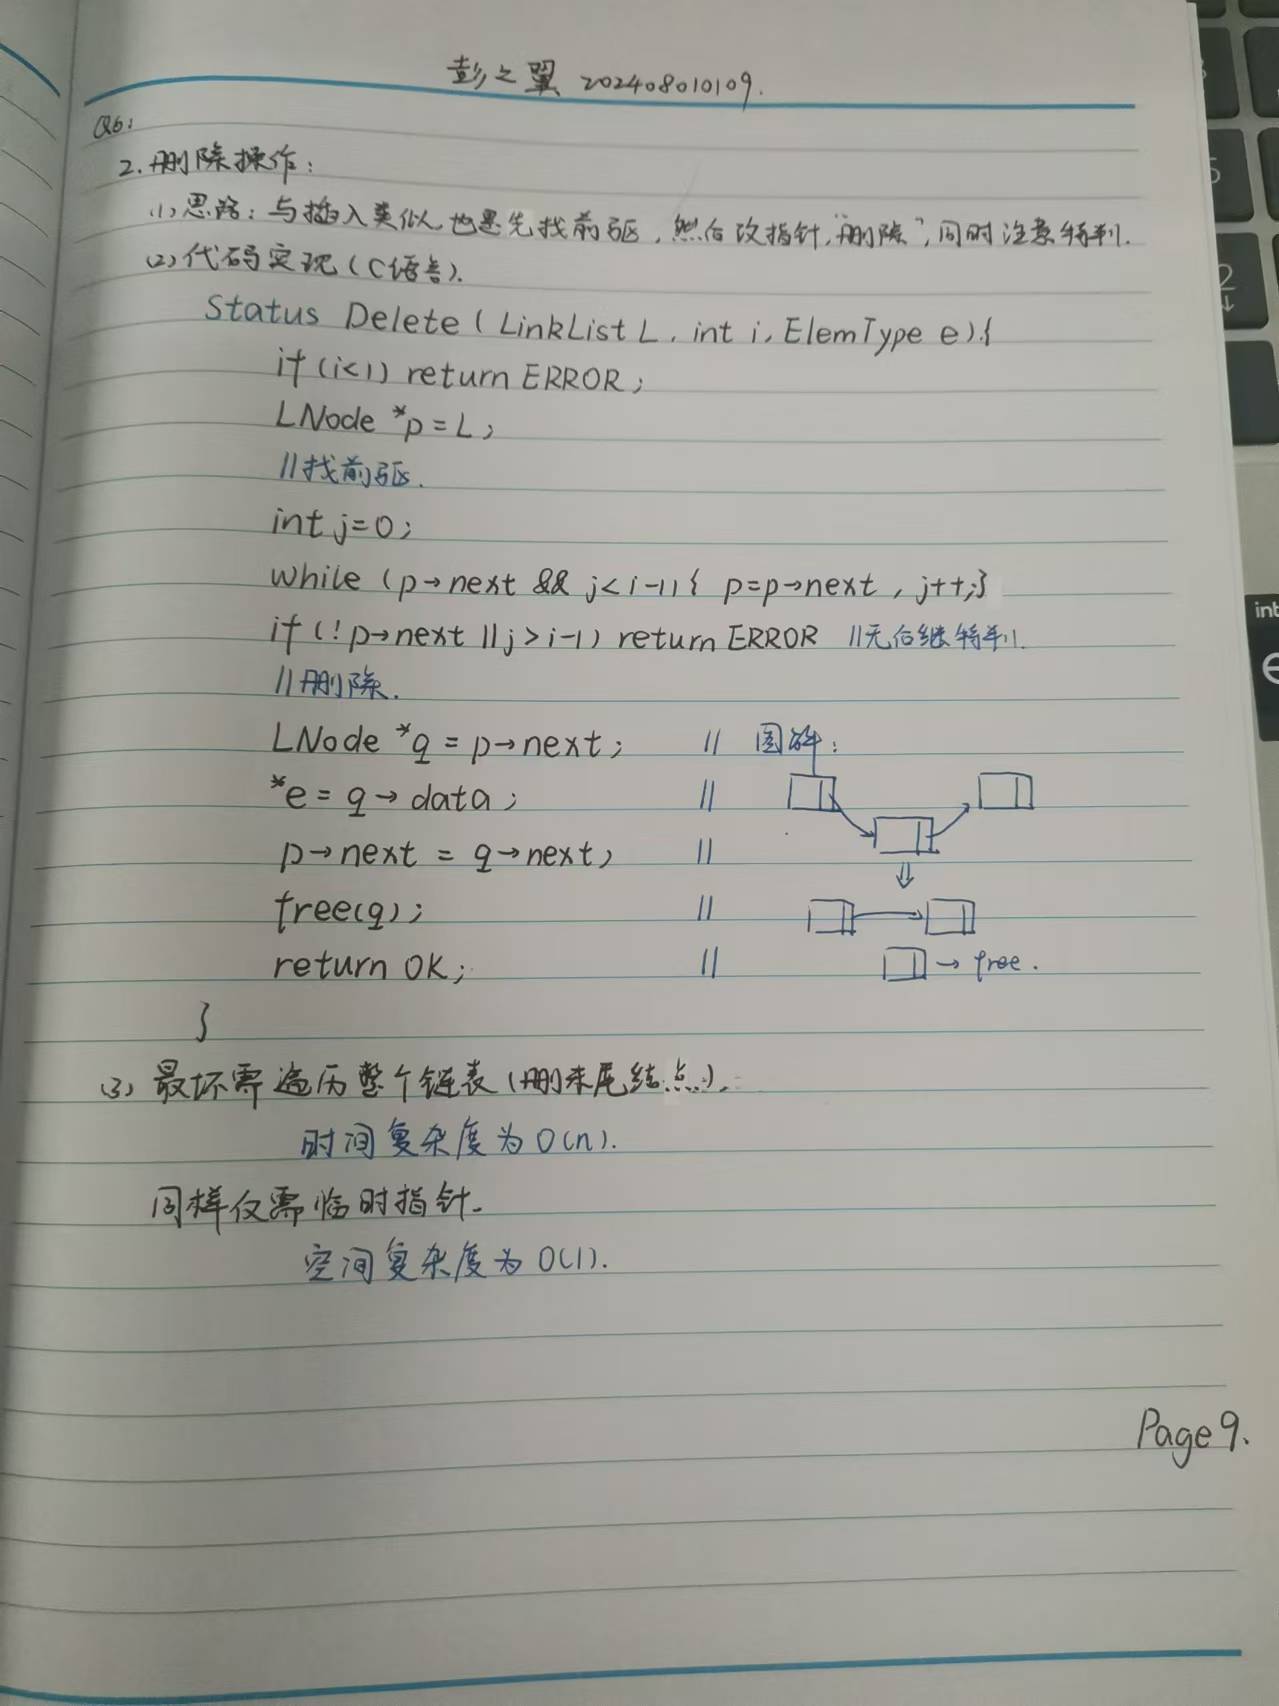 彭之翼 202408010109.
Q6:
2.删除操作:
(1)思路:与插入类似,也是先找前驱,然后改指针,"删除",同时注意特判.
(2)代码实现(C语言).
Status Delete(LinkList L, int i, ElemType e){
if(i<1) return ERROR;
LNode *p=L;
//找前驱.
int j=0;
while(p→next && j<i-1){ p=p→next, j++;}
if(!p→next || j>i-1) return ERROR //无后继特判.
//删除.
LNode *q = p→next; // 图解:
*e = q→data; //
p→next = q→next; //
free(q); //
return OK; // → free.
}
(3) 最坏需遍历整个链表(删末尾结点).
时间复杂度为O(n).
同样仅需临时指针.
空间复杂度为O(1).
Page 9.
5
2
↓
int
e